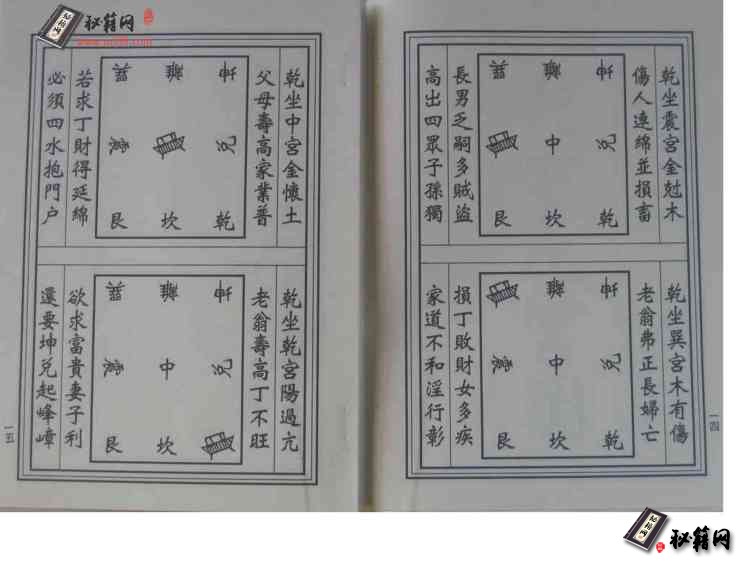 秘籍网
乾坐震宮金尅木
傷人連綿並損畜
巽 離 坤
中 兌
艮 坎 乾
長男乏嗣多賊盜
高出四眾子孫獨
乾坐巽宮木有傷
老翁弗正長婦亡
離 坤
震 中 兌
艮 坎 乾
損丁敗財女多疾
家道不和淫行彰
一四
乾坐中宮金懷土
父母壽高家業普
巽 離 坤
震 兌
艮 坎 乾
若求丁財得延綿
必須四水抱門户
乾坐乾宮陽過亢
老翁壽高丁不旺
巽 離 坤
震 中 兌
艮 坎
欲求富貴妻子利
還要坤兌起峰嶂
一五
秘籍网